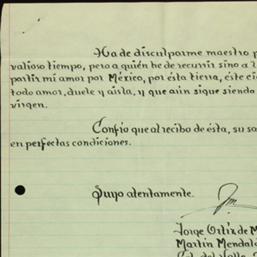 Ha de disculparme maestro p
valioso tiempo, pero a quién he de recurrir sino a
partir mi amor por México, por ésta tierra, éste
todo amor, duele y aisla, y que aún sigue siendo
virgen.
Confío que al recibo de ésta, su sa
en perfectas condiciones.
Suyo atentamente.
Jorge Ortíz de M
Martín Mendal